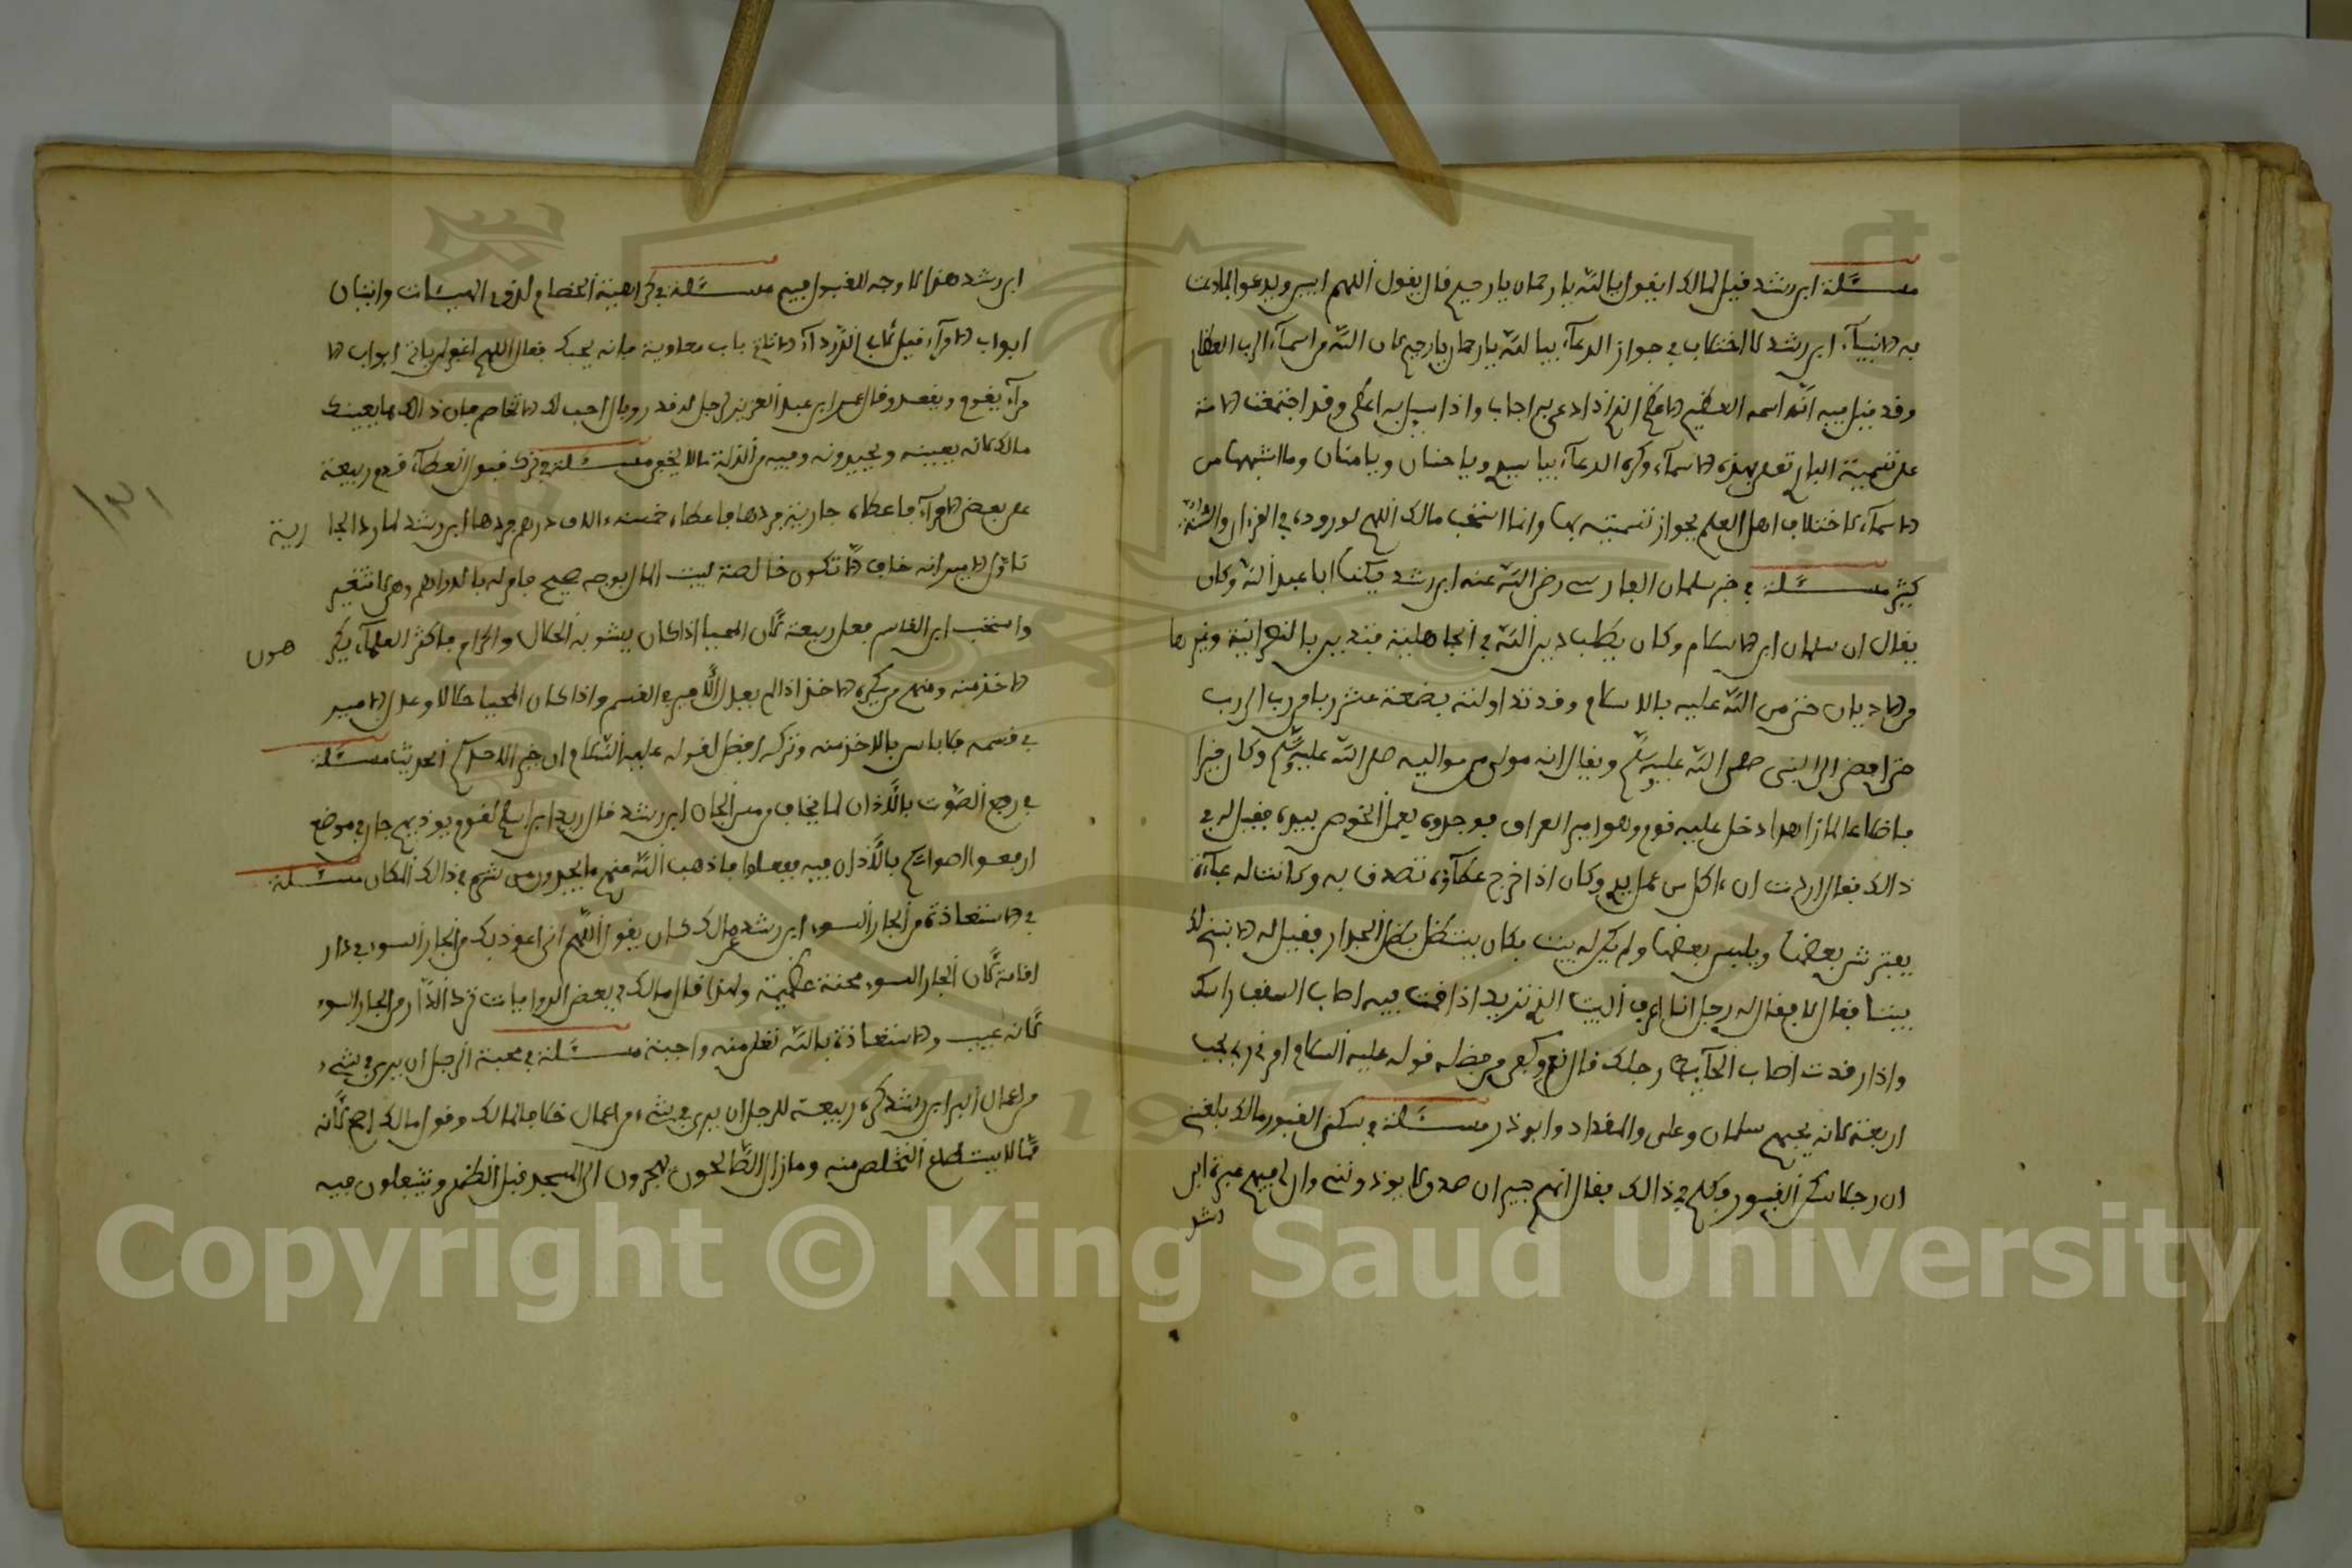 مسئلة ابن رشد قيل لمالك ايقول يا الله يا رحمان يا رحيم قال يقول اللهم ابين ويدعو بما دعت
به الانبياء ابن رشد لا اختلاف في جواز الدعاء بيا الله يا رحمان يا رحيم لان الله من اسماء الرب العظام
وقد قيل فيه انه اسمه العظيم الاعظم الذي اذا دعي به اجاب واذا سيل به اعطى وقد اجتمعت الامة
على تسمية الباري تعلى بهذه الاسماء وكره الدعاء بيا سيد ويا حنان ويا منان وما اشبهها من
الاسماء لاختلاف اهل العلم بجواز تسميته بها وانما استحب مالك اللهم لوروده في القرءان والسنة
كثير مسئلة في خبر سلمان الفارسي رضي الله عنه ابن رشد يكنى ابا عبد الله وكان
يقال ان سلمان ابن الاسلام وكان يطلب دين الله في الجاهلية فتدين بالنصرانية وغيرها
من الاديان حتى من الله عليه بالاسلام وقد تداولته بضعة عشر ربا من رب الى رب
حتى افضى الى النبي صلى الله عليه وسلم ويقال انه مولى من مواليه صلى الله عليه وسلم وكان خيرا
فاضلا عالما زاهدا دخل عليه قوم وهو امير العراق فوجدوه يعمل الخوص بيده فقيل له في
ذالك فقال اردت ان ءاكل من عمل يدي وكان اذا خرج عطاؤه تصدق به وكانت له عباءة
يفترش بعضها ويلبس بعضها ولم يكن له بيت بكان يستظل بظل الجدار فقيل له الا نبني لك
بيتا فقال لا فقال له رجل انا اعرف البيت الذي تريد اذا قمت فيه اصاب السقف راسك
واذا رقدت اصاب الحائط رجلك قال نعم وكفى من فضله قوله عليه السلام امرني ربي بحب
اربعة لانه يحبهم سلمان وعلى والمقداد وابو ذر مسئلة في سكنى القبور مالك بلغني
ان رجلا سكن القبور فكلم في ذالك فقال انهم جيران صدق لا يوذونني وان لي فيهم عبرة ابن
رشد
ابن رشد هذا لا وجه للقبول فيه مسئلة في كراهية الخصام لذوي الهيئات واتيان
ابواب الامراء قيل لابي الدرداء الا تاتي باب معاوية فانه يحبك فقال اللهم اغفر من ياتي ابواب الا
مراء يقوم ويقعد وقال عمر ابن عبد العزيز لرجل له قدر وبال احب لك الا تخاصم فان ذالك مما يعيبك
مالك لانه يعيبه ويحيدونه وفيه من الذلة ما لا يخفى مسئلة في ترك قبول العطاء قدم ربيعة
على بعض الامراء فاعطاه جارية فردها فاعطاه خمسة ءالاف درهم فردها ابن رشد لما رد الجا رية
تاول الامير انه خاف الا تكون خالصة لبيت المال بوجه صحيح فامر له بالدراهم وهي لا تتغير
واستحب ابن القاسم فعل ربيعة لان المجبا اذا كان يشوبه الحلال والحرام فاكثر العلماء يكر هون
الاخذ منه ومنهم من يكره الاخذ اذا لم يعدل الامير في القسم واذا كان المجبا حلالا وعدل الامير
في قسمه فلا باس بالاخذ منه وتركه افضل لقوله عليه السلام ان خير الاحدكم الحديث مسئلة
في رفع الصوت بالاذان لما يخاف من مس الجان ابن رشد قال زيد ابن اسلم لقوم يوذيهم جان في موضع
ارفعوا اصواتكم بالاذان فيه ففعلوا فاذهب الله منهم ما يجدون من شرهم في ذالك المكان مسئلة
في الاستعاذة من الجار السوء ابن رشد عن مالك كان يقول اللهم اني اعوذ بك من الجار السوء في دار
اقامة لان الجار السوء محنة عظيمة ولهذا قال مالك في بعض الروايات ترد الدار من الجار السوء
لانه عيب والاستعاذة بالله تعلى منه واجبة مسئلة في محبة الرجل ان يرى في شيء
من اعمال البر ابن رشد كره ربيعة للرجل ان يرى في شيء من اعمال خلافا لمالك وقول مالك اصح لانه
مما لا يستطاع التخلص منه وما زال الصالحون يهجرون الى المسجد قبل الظهر ويتنفلون فيه